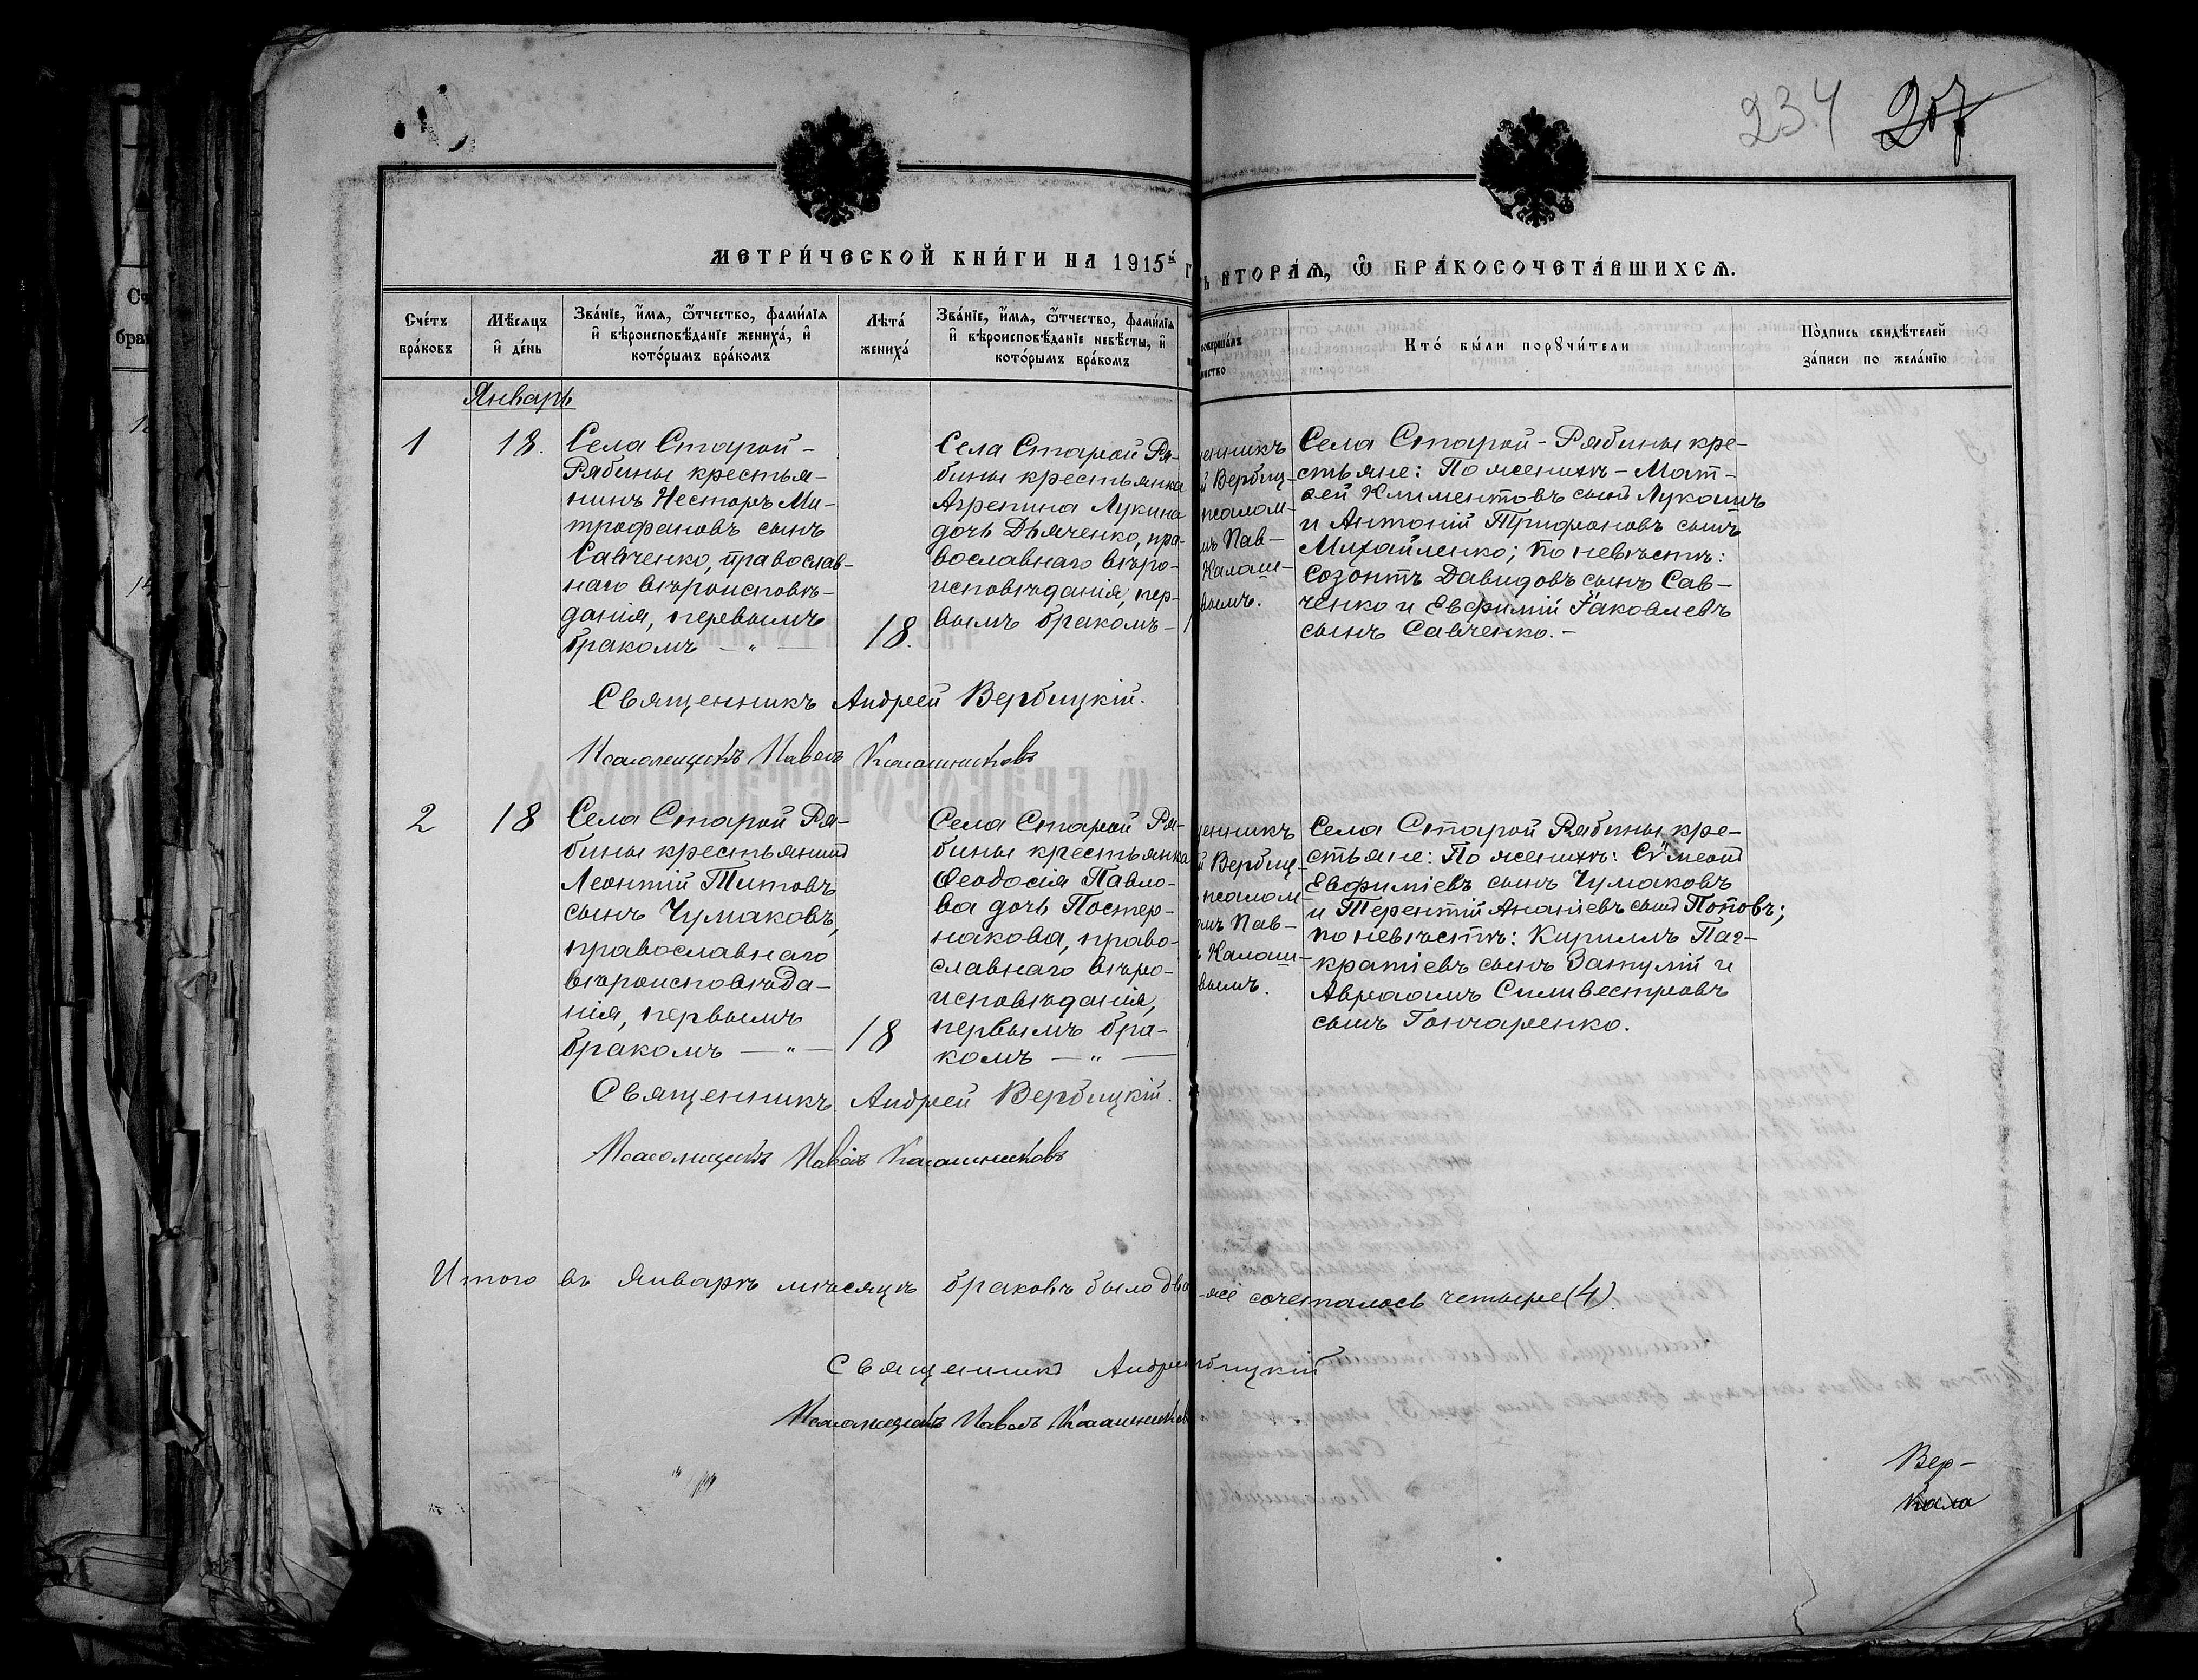 234 207
МЕТРИ́ЧЕСКОЙ КНИ́ГИ НА 1915й Г
Ь ВТОРА́Ѧ, Ѽ БРА́КОСОЧЕТА́ВШИХСѦ.
Сче́тъ
бра́ковъ
Мѣ́сѧцъ
и҆ де́нь
Зва́нїе, и҆́мѧ, ѻ҆́тчество, фами́лїѧ
и҆ вѣроисповѣ́данїе жениха́, и҆
кото́рымъ бра́комъ
Лѣта́
жениха́
Зва́нїе, и҆́мѧ, ѻ҆́тчество, фами́лїѧ
и҆ вѣроисповѣ́данїе невѣ́сты, и҆
кото́рымъ бра́комъ
соверша́лъ
инство
Кто́ бы́ли порꙋчи́тели
По́дпись свидѣ́телей
за́писи по жела́нїю
Январь
1
18.
Села Старой-
Рябины крестья-
нинъ Несторъ Ми-
трофановъ сынъ
Савченко, православ-
наго вѣроисповѣ-
данія, первымъ
бракомъ — " —
18.
Села Старой Ря-
бины крестьянка
Агрепина Лукина
дочь Дьяченко, пра-
вославнаго вѣро-
исповѣданія, пер-
вымъ бракомъ —
енникъ
й Вербиц-
псалом-
мъ Пав-
Калаш-
вымъ.
Села Старой-Рябины кре-
стьяне: По женихѣ - Мат-
ѳей Климентовъ сынъ Лукашъ
и Антоній Трифоновъ сынъ
Михайленко; по невѣстѣ:
Созонтъ Давидовъ сынъ Сав-
ченко и Евфимій Іаковлевъ
сынъ Савченко. -
Священникъ Андрей Вербицкій.
Псаломщикъ Павелъ Калашниковъ
2
18
Села Старой Ря-
бины крестьянинъ
Леонтій Титовъ
сынъ Чумаковъ,
православнаго
вѣроисповѣда-
нія, первымъ
бракомъ — " —
18
Села Старой Ря-
бины крестьянка
Ѳеодосія Павло-
ва дочь Постер-
накова, право-
славнаго вѣро-
исповѣданія,
первымъ бра-
комъ — " —
енникъ
й Вербиц-
псалом-
омъ Пав-
ъ Калаш-
вымъ.
Села Старой Рябины кре-
стьяне: По женихѣ: Сѵмеонъ
Евфиміевъ сынъ Чумаковъ
и Терентій Ананіевъ сынъ Поповъ;
по невѣстѣ: Кириллъ Пан-
кратіевъ сынъ Затулій и
Авраамъ Силивестровъ
сынъ Гончаренко.
Священникъ Андрей Вербицкій.
Псаломщикъ Павелъ Калашниковъ
Итого въ Январѣ мѣсяцѣ браковъ было два
-же сочеталось четыре (4).
Священникъ Андрей
рбицкій
Псаломщикъ Павелъ Калашников
Вер-
Кала